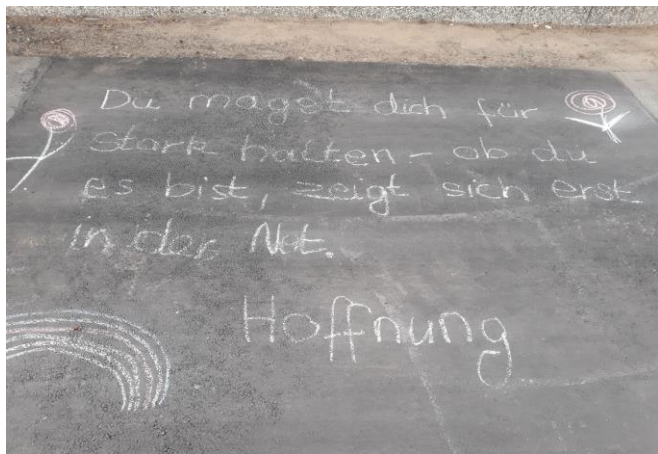 Du magst dich für
stark halten - ob du
es bist, zeigt sich erst
in der Not.
Hoffnung